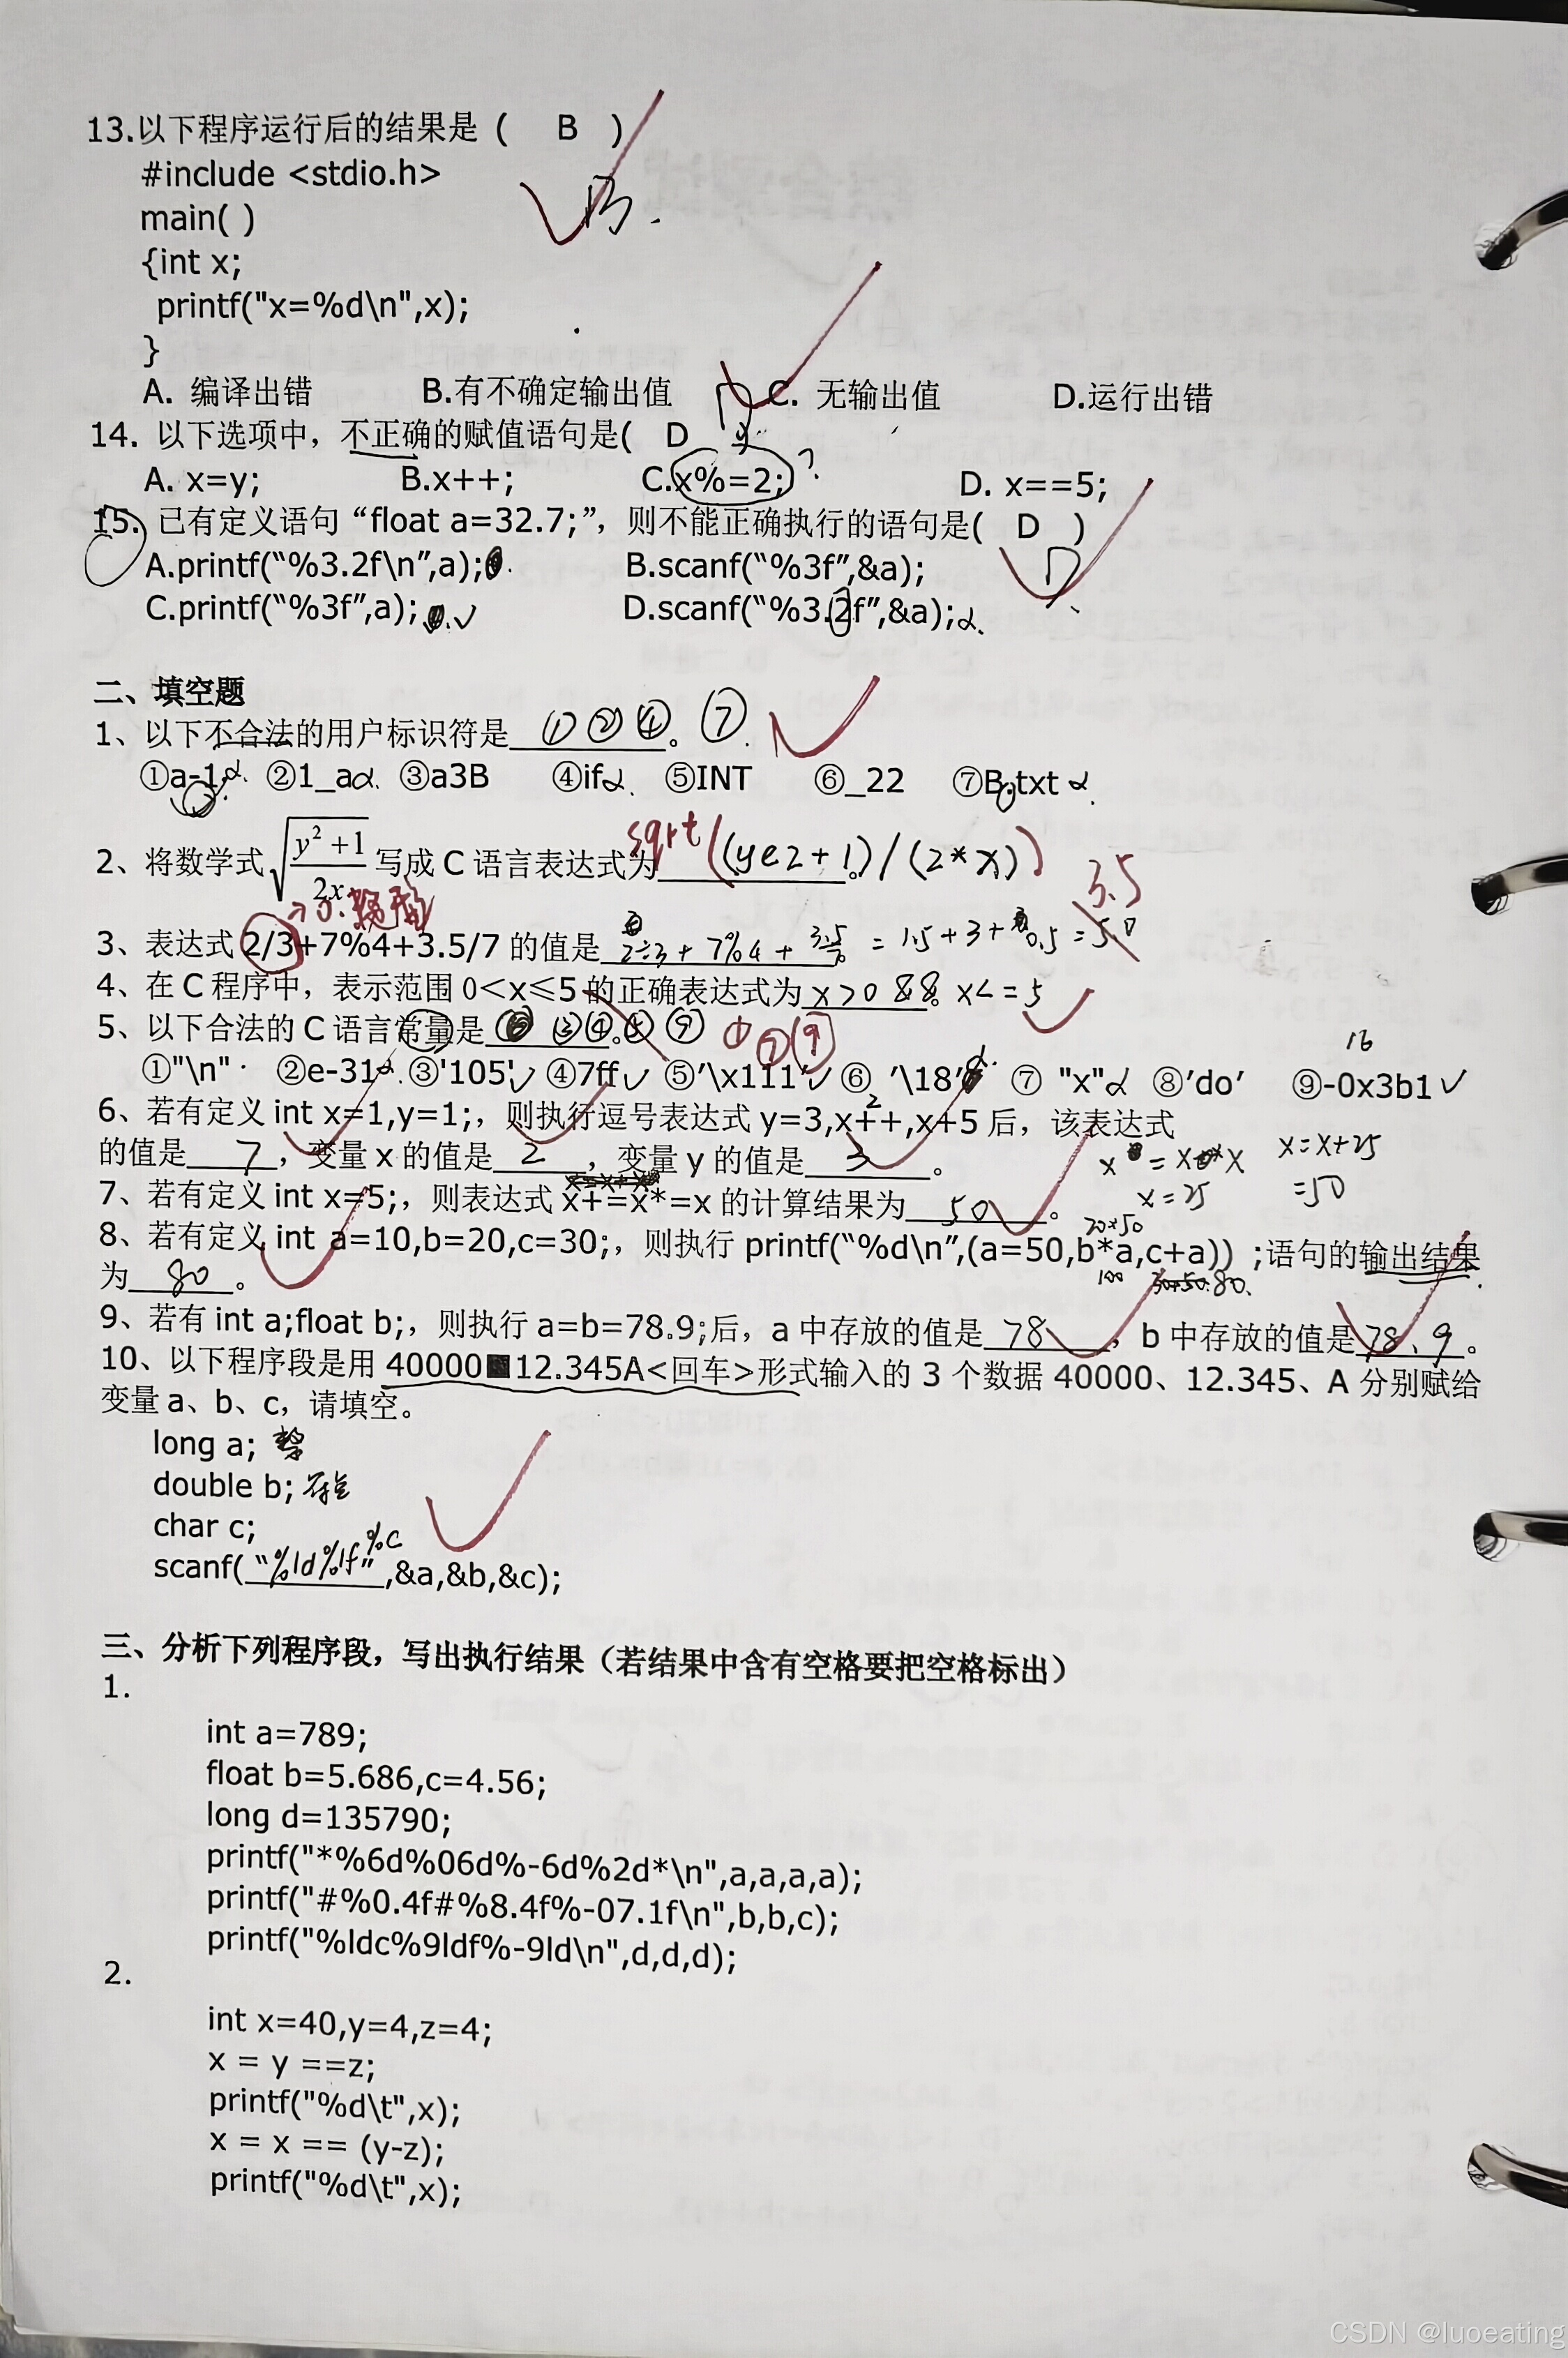 13.以下程序运行后的结果是 ( B )
#include <stdio.h>
main( )
B.
{int x;
printf("x=%d\n",x);
}
A. 编译出错 B.有不确定输出值 C. 无输出值 D.运行出错
14. 以下选项中，不正确的赋值语句是( D )
A. x=y; B.x++; C.x%=2; ? D. x==5;
15. 已有定义语句“float a=32.7;”，则不能正确执行的语句是( D )
A.printf(“%3.2f\n”,a); B.scanf(“%3f”,&a); D
C.printf(“%3f”,a); D.scanf(“%3.2f”,&a);
二、填空题
1、以下不合法的用户标识符是 ①②④ 。⑦
①a-1 ②1_a ③a3B ④if ⑤INT ⑥_22 ⑦B.txt
2、将数学式 √((y²+1)/2x) 写成 C 语言表达式为 sqrt((ye2+1)/(2*x)) 。
3.5
→0.
3、表达式 2/3+7%4+3.5/7 的值是 2÷3 + 7%4 + 3.5/7 = 1.5+3+0.5=5.0
4、在 C 程序中，表示范围 0<x≤5 的正确表达式为 x>0 && x<=5 。
5、以下合法的 C 语言常量是 ③④ 。⑤ ⑨ ① ⑦ ⑨
16
①"\n" ②e-31 ③'105' ④7ff ⑤'\x111' ⑥ '\18' ⑦ "x" ⑧'do' ⑨-0x3b1
6、若有定义 int x=1,y=1;，则执行逗号表达式 y=3,x++,x+5 后，该表达式
的值是 7 ，变量 x 的值是 2 ，变量 y 的值是 3 。
x=x+25
x=25 =50
7、若有定义 int x=5;，则表达式 x+=x*=x 的计算结果为 50 。
20×50
8、若有定义 int a=10,b=20,c=30;，则执行 printf(“%d\n”,(a=50,b*a,c+a)) ;语句的输出结果
为 80 。 100 30+50.80.
9、若有 int a;float b;，则执行 a=b=78.9;后，a 中存放的值是 78 ，b 中存放的值是 78.9 。
10、以下程序段是用 40000■12.345A<回车>形式输入的 3 个数据 40000、12.345、A 分别赋给
变量 a、b、c，请填空。
long a; 整
double b;
char c;
scanf( “%ld%lf%c” ,&a,&b,&c);
三、分析下列程序段，写出执行结果（若结果中含有空格要把空格标出）
1.
int a=789;
float b=5.686,c=4.56;
long d=135790;
printf("*%6d%06d%-6d%2d*\n",a,a,a,a);
printf("#%0.4f#%8.4f%-07.1f\n",b,b,c);
printf("%ldc%9ldf%-9ld\n",d,d,d);
2.
int x=40,y=4,z=4;
x = y ==z;
printf("%d\t",x);
x = x == (y-z);
printf("%d\t",x);
CSDN @luoeating